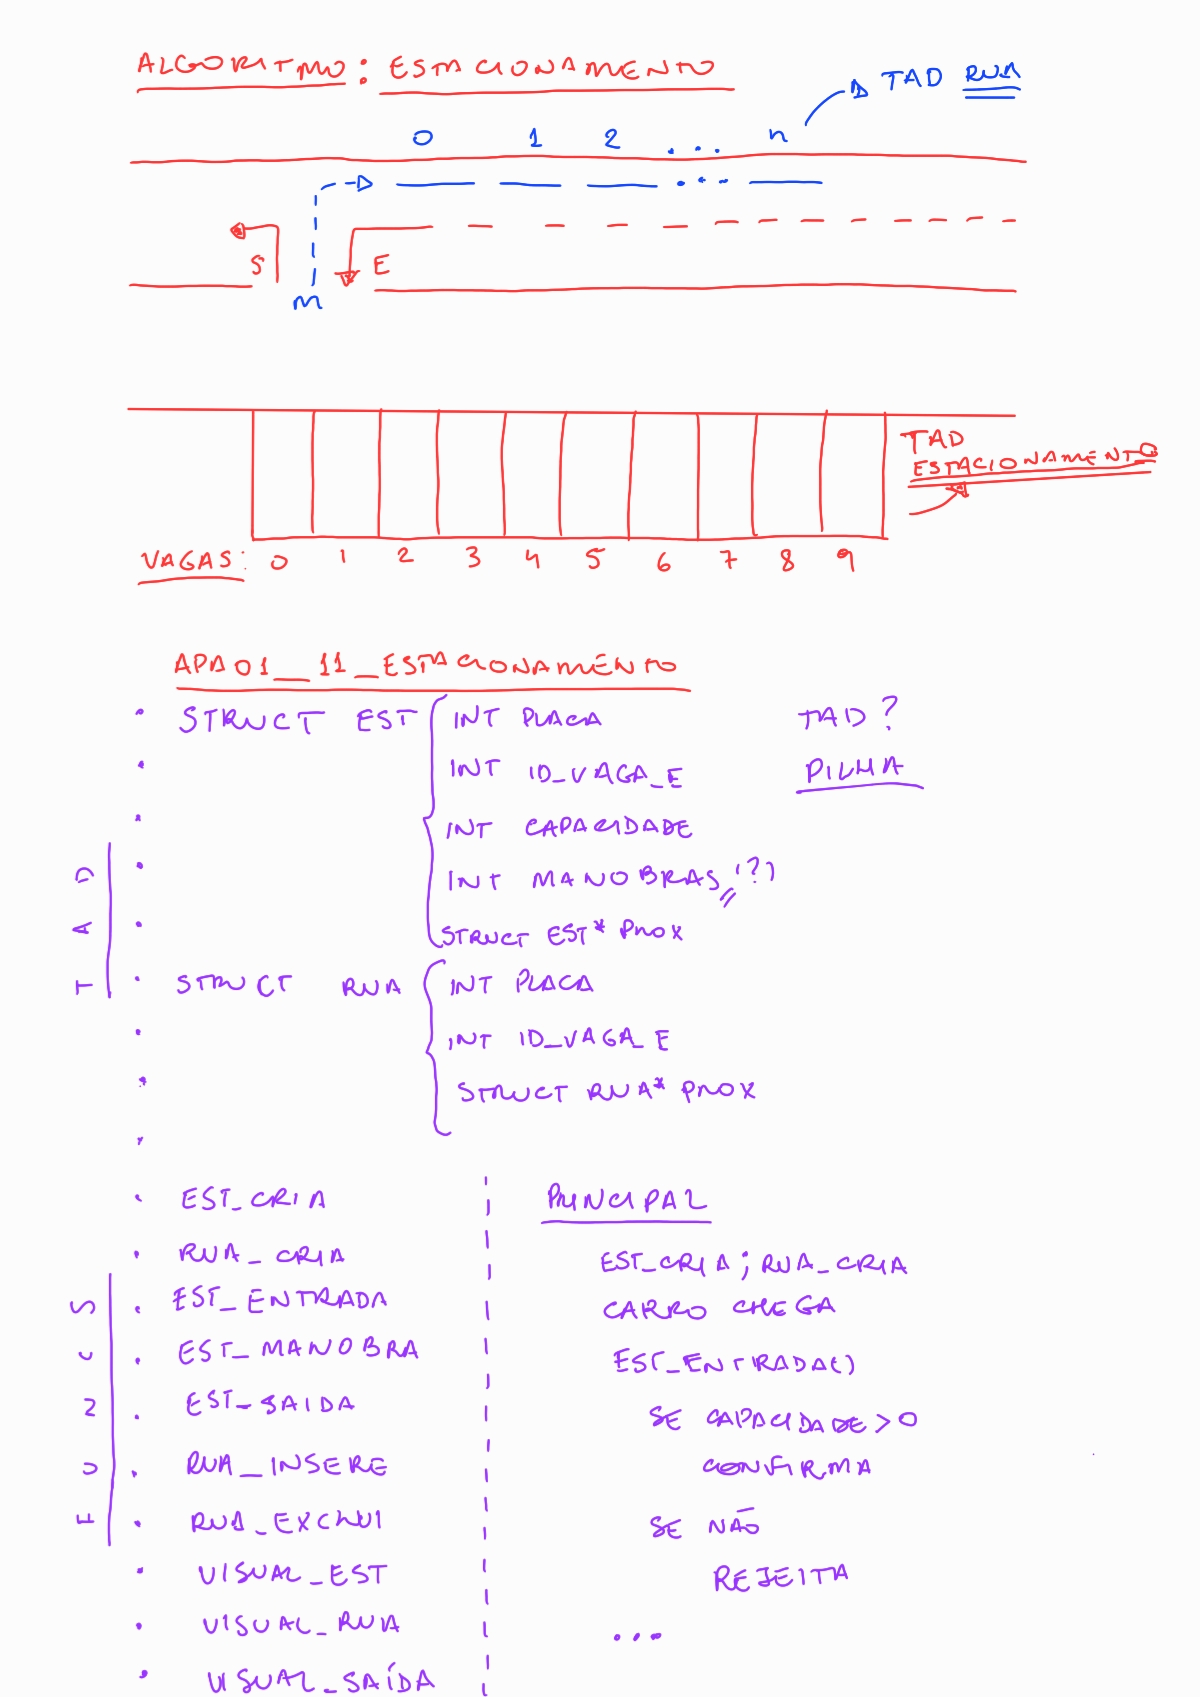 ALGORITMO: ESTACIONAMENTO
TAD RUA
0 1 2 ... n
S E
m
TAD
ESTACIONAMENTO
VAGAS: 0 1 2 3 4 5 6 7 8 9
APA01__11_ESTACIONAMENTO
STRUCT EST { INT PLACA TAD?
INT ID_VAGA_E PILHA
INT CAPACIDADE
INT MANOBRAS (?)
STRUCT EST* PROX
TAD
STRUCT RUA { INT PLACA
INT ID_VAGA_E
STRUCT RUA* PROX
EST_CRIA
RUA_CRIA
EST_ENTRADA
EST_MANOBRA
EST_SAIDA
RUA_INSERE
RUA_EXCLUI
VISUAL_EST
VISUAL_RUA
VISUAL_SAÍDA
PRINCIPAL
EST_CRIA; RUA_CRIA
CARRO CHEGA
EST_ENTRADA()
SE CAPACIDADE > 0
CONFIRMA
SE NÃO
REJEITA
...